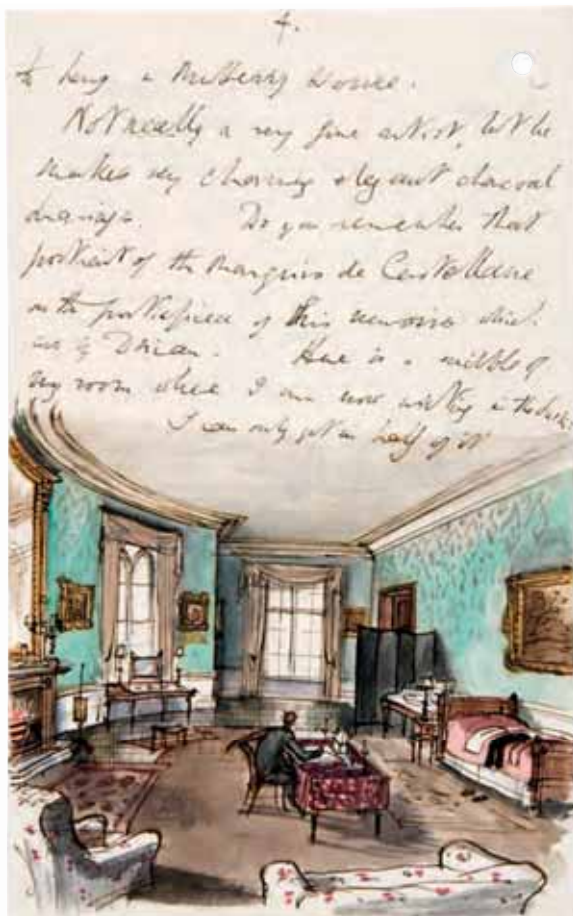 4.
to hang in Mulberry House.
Not really a very fine artist, but he
makes very charming elegant charcoal
drawings. Do you remember that
portrait of the Marquis de Castellane
on the frontispiece of his memoirs which
was by Drian. Here is a
my room where I am now writing in the dusk.
I can only get in half of it